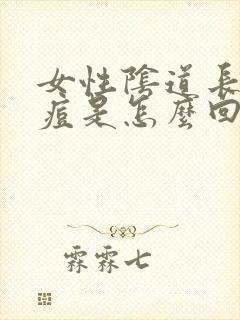 女性陰道長
痘是怎麼回
霖霖七